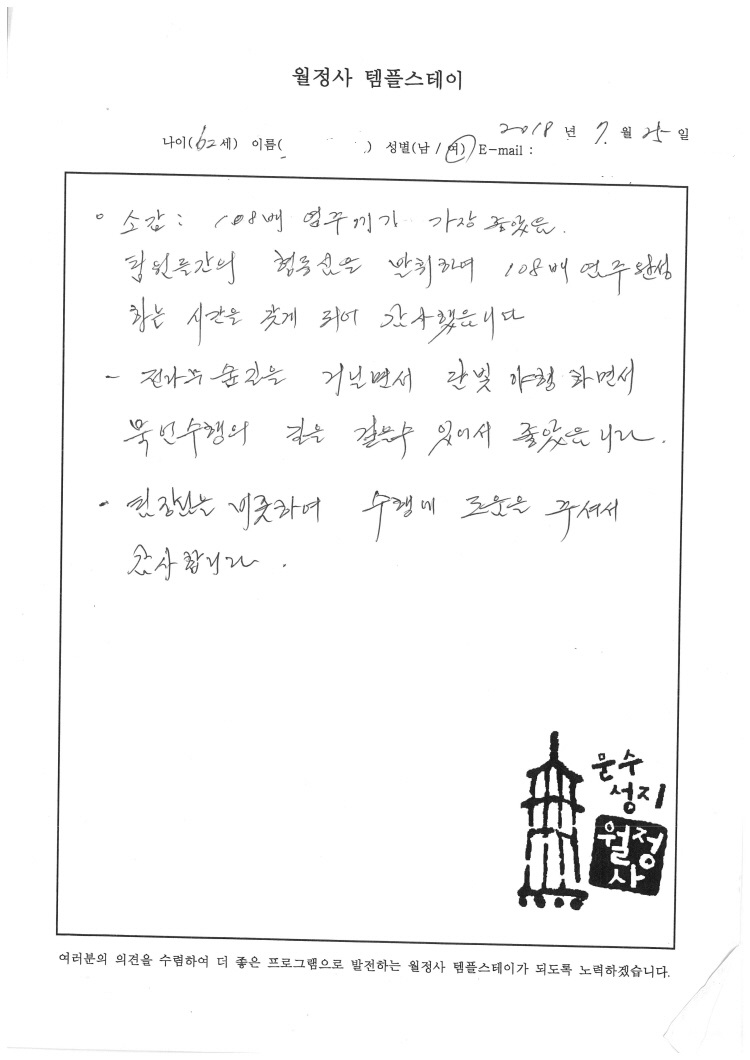 월정사 템플스테이
2018 년 7. 월 25 일
나이(62세) 이름( ) 성별(남 / 여) E-mail :
◦ 소감 : 108배 염주끼기 가장 좋았음.
팀원들간의 협동심을 발취하여 108배 염주 완성
하는 시간을 갖게 되어 감사했읍니다
- 전나무 숲길을 거닐면서 달빛 야행 하면서
묵언수행의 길을 걸을수 있어서 좋았읍니다.
- 팀장님을 비롯하여 수행에 도움을 주셔서
감사합니다.
문수
성지
월정
사
여러분의 의견을 수렴하여 더 좋은 프로그램으로 발전하는 월정사 템플스테이가 되도록 노력하겠습니다.